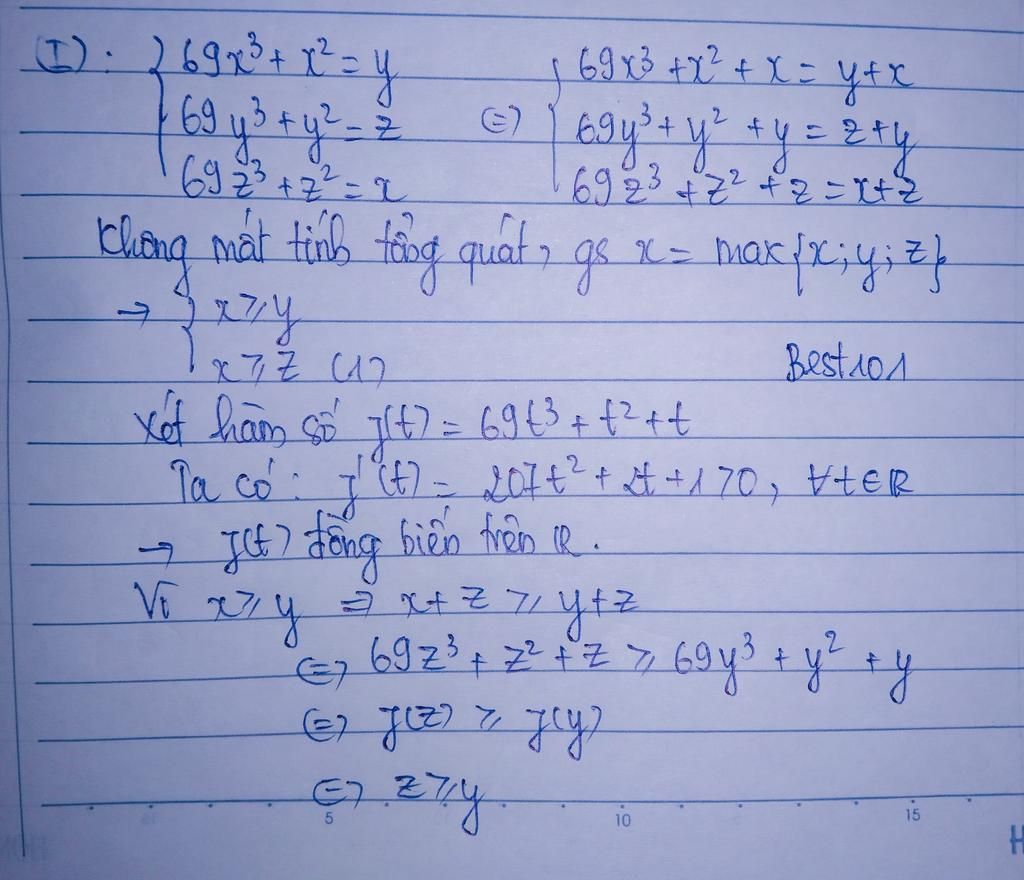 (I): { 69x³ + x² = y ⇔ { 69x³ + x² + x = y + x
69y³ + y² = z 69y³ + y² + y = z + y
69z³ + z² = x 69z³ + z² + z = x + z
Không mất tính tổng quát, gs x = max{x; y; z}
→ { x ≥ y
x ≥ z (1) Best101
Xét hàm số f(t) = 69t³ + t² + t
Ta có: f'(t) = 207t² + 2t + 1 > 0, ∀t ∈ R
→ f(t) đồng biến trên R.
Vì x ≥ y ⇒ x + z ≥ y + z
⇔ 69z³ + z² + z ≥ 69y³ + y² + y
⇔ f(z) ≥ f(y)
⇔ z ≥ y
5 10 15